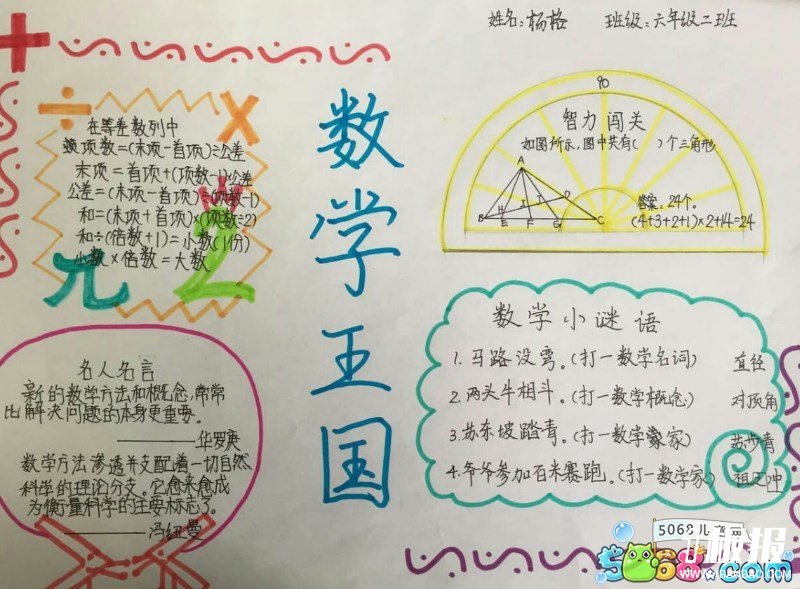 姓名:杨格 班级:六年级二班
+
÷ ×
在等差数列中
项数=(末项-首项)÷公差
末项=首项+(项数-1)公差
公差=(末项-首项)÷(项数-1)
和=(末项+首项)×(项数÷2)
和÷(倍数+1)=小数(1份)
小数×倍数=大数
π 2
数学王国
90
智力闯关
如图所示,图中共有( )个三角形
A
H I J D
B E F G C
答案:24个。
(4+3+2+1)×2+14=24
名人名言
新的数学方法和概念,常常
比解决问题的本身更重要。
————华罗庚
数学方法渗透并支配着一切自然
科学的理论分支。它愈来愈成
为衡量科学的主要标志了。
————冯纽曼
数学小谜语
1.马路没弯。(打一数学名词) 直径
2.两头牛相斗。(打一数学概念) 对顶角
3.苏东坡踏青。(打一数学家) 苏步青
4.爷爷参加百米赛跑。(打一数学家) 祖冲
5068儿童网
5068.com
板报
WWW.1BANBAO.COM